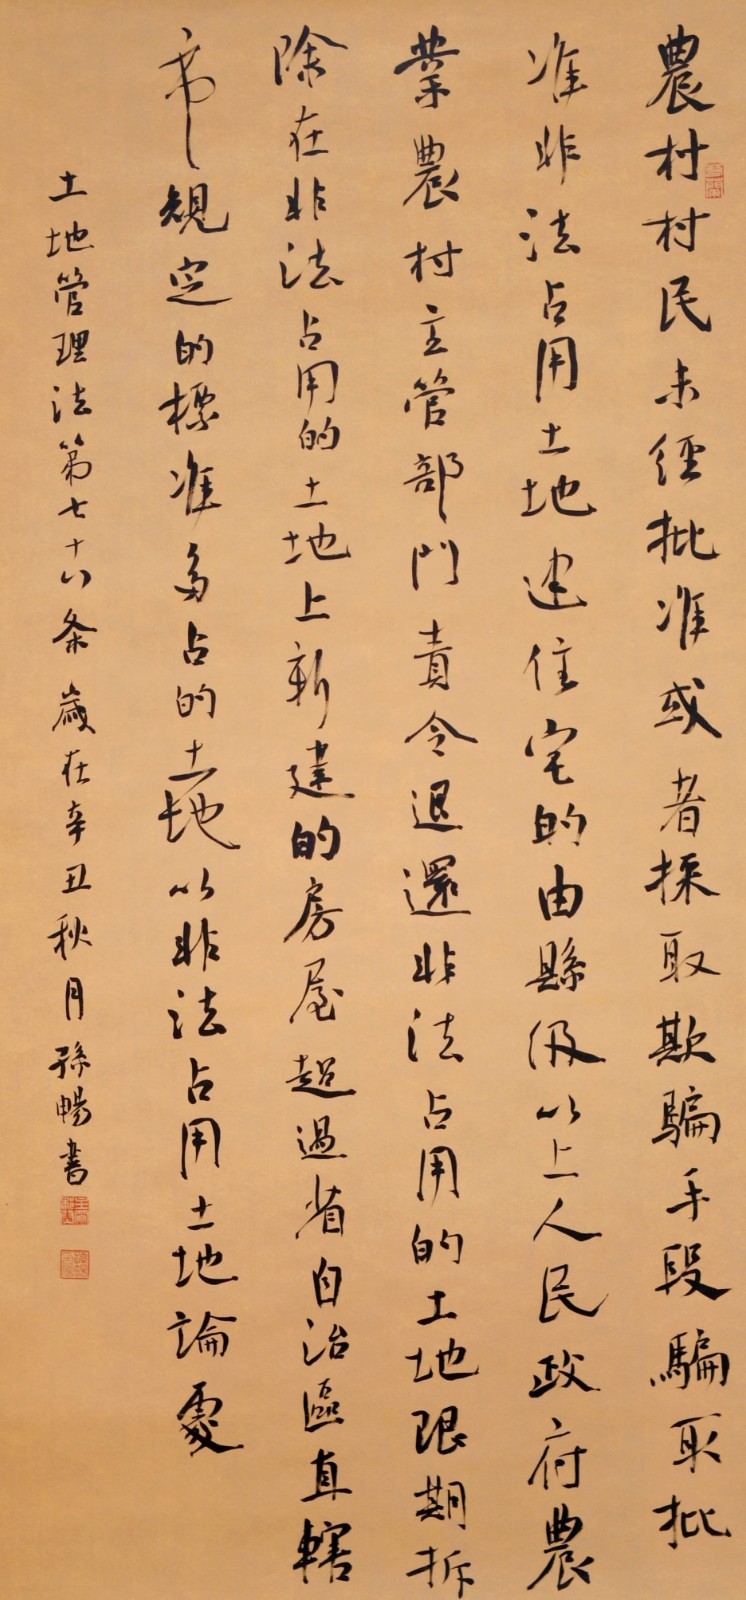 農村村民未經批准或者採取欺騙手段騙取批
准非法占用土地建住宅的由縣級以上人民政府農
業農村主管部門責令退還非法占用的土地限期拆
除在非法占用的土地上新建的房屋超過省自治區直轄
市規定的標准多占的土地以非法占用土地論處
土地管理法第七十八条歲在辛丑秋月孫暢書